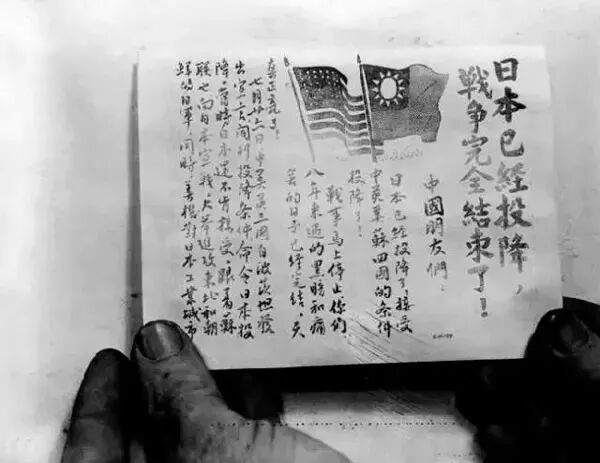 日本已經投降，
戰爭完全結束了！
中國朋友們、
日本已經投降了，接受
中英美蘇四國的条件
投降了！
戰事馬上停止你們
八年來過的黑暗和痛
苦的日子已經完結，天
真正亮了！
七月廿六日中美英三國自波茨坦發
出宣言開列投降条件命令日本投
降，當時日本還不肯接受，跟着蘇
聯也向日本宣戰大举進攻東北和朝
鮮的日軍，同時美機對日本工業城市